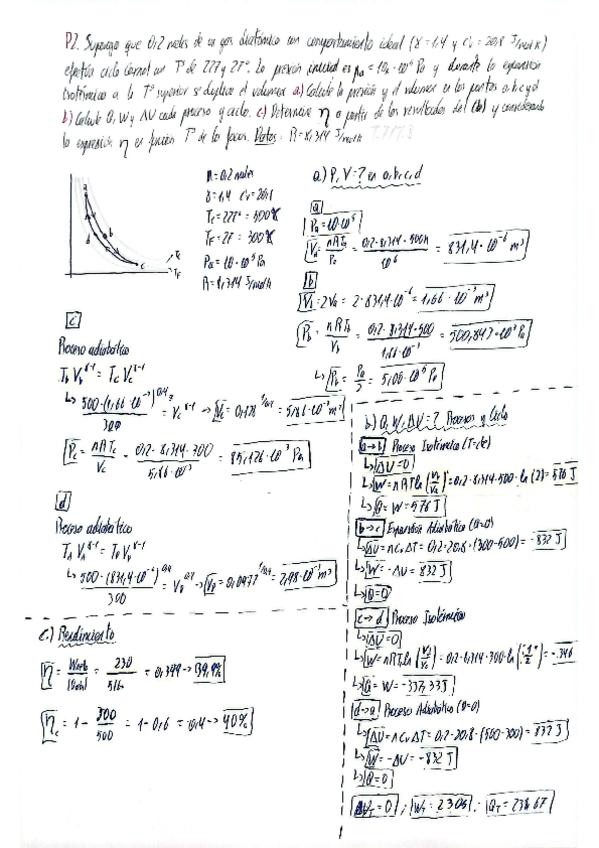 P2. Supongo que 0,2 moles de un gas diatómico con comportamiento ideal (γ = 1,4 y Cv = 20,8 J/mol K)
efectúa ciclo Carnot con Tª de 227 y 27º. La presión inicial es Pa = 10·10⁵ Pa y durante la expansión
isotérmica a la Tª superior se duplica el volumen a) Calcule la presión y el volumen en los puntos a,b,c y d
b) Calcule Q, W y ΔU cada proceso y ciclo. c) Determine η a partir de los resultados del (b) y considerando
la expresión η en función Tª de los focos. Datos: R = 8,314 J/mol K
n = 0,2 moles
γ = 1,4 Cv = 20,8
Tc = 227º = 500 K
TF = 27 = 300 K
Pa = 10·10⁵ Pa
R = 8,314 J/mol K
a
b
d
c
Tc
TF
a) P, V = ? en a,b,c,d
a
Pa = 10·10⁵
Va = nRTa/Pa = 0,2·8,314·500/10⁶ = 831,4·10⁻⁶ m³
b
Vb = 2Va = 2·831,4·10⁻⁶ = 1,66·10⁻³ m³
Pb = nRTb/Vb = 0,2·8,314·500/1,66·10⁻³ = 500,843·10³ Pa
↳ Pb = Pa/2 = 5,00·10⁵ Pa
c
Proceso adiabático
Tb Vb^γ-1 = Tc Vc^γ-1
↳ 500·(1,66·10⁻³)^0,4/300 = Vc^γ-1 → Vc = 0,128^1/0,4 = 5,96·10⁻³ m³
Pc = nRTc/Vc = 0,2·8,314·300/5,86·10⁻³ = 85,126·10³ Pa
d
Proceso adiabático
Ta Va^γ-1 = TD VD^γ-1
↳ 500·(831,4·10⁻⁶)^0,4/300 = VD^0,4 → VD = 0,0977^1/0,4 = 2,98·10⁻³ m³
c) Rendimiento
η = Wciclo/|Qabs| = 230/576 = 0,399 → 39,9%
ηc = 1 - 300/500 = 1 - 0,6 = 0,4 → 40%
b) Q, W, ΔU = ? Procesos y Ciclo
a → b Proceso Isotérmico (T = cte)
↳ ΔU = 0
↳ W = nRT ln (Vb/Va) = 0,2·8,314·500·ln(2) = 576 J
↳ Q = W = 576 J
b → c Expansión Adiabática (Q=0)
↳ ΔU = nCvΔT = 0,2·20,8·(300-500) = -832 J
↳ W = -ΔU = 832 J
↳ Q = 0
c → d Proceso Isotérmico
↳ ΔU = 0
↳ W = nRTc ln (Vd/Vc) = 0,2·8,314·300·ln = -346
↳ Q = W = -337,33 J
d → a Proceso Adiabático (Q=0)
↳ ΔU = nCvΔT = 0,2·20,8·(500-300) = 832 J
↳ W = -ΔU = -832 J
↳ Q = 0
ΔUT = 0 ; WT = 230 J ; QT = 238,67 J